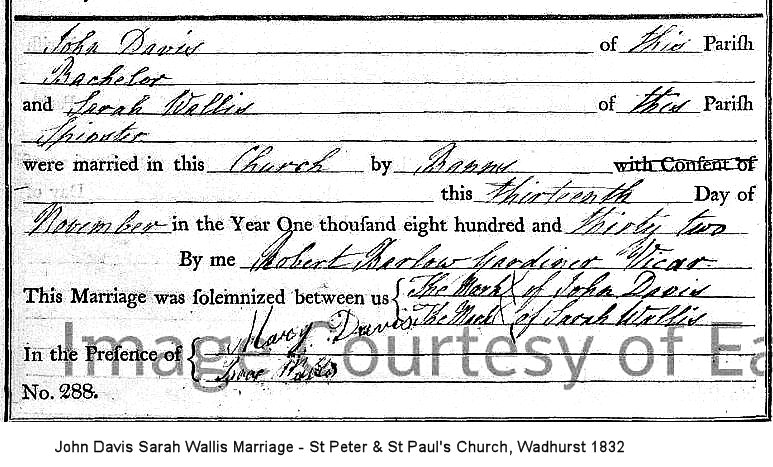 John Davis of this Parish
Bachelor
and Sarah Wallis of this Parish
Spinster
were married in this Church by Banns with Consent of
this thirteenth Day of
November in the Year One thousand eight hundred and thirty two
By me Robert Barlow Gardiner Vicar
This Marriage was solemnized between us { The Mark X of John Davis
The Mark X of Sarah Wallis
In the Presence of { Mary Davis
Isaac
No. 288.
Image Courtesy of Ea
John Davis Sarah Wallis Marriage - St Peter & St Paul's Church, Wadhurst 1832